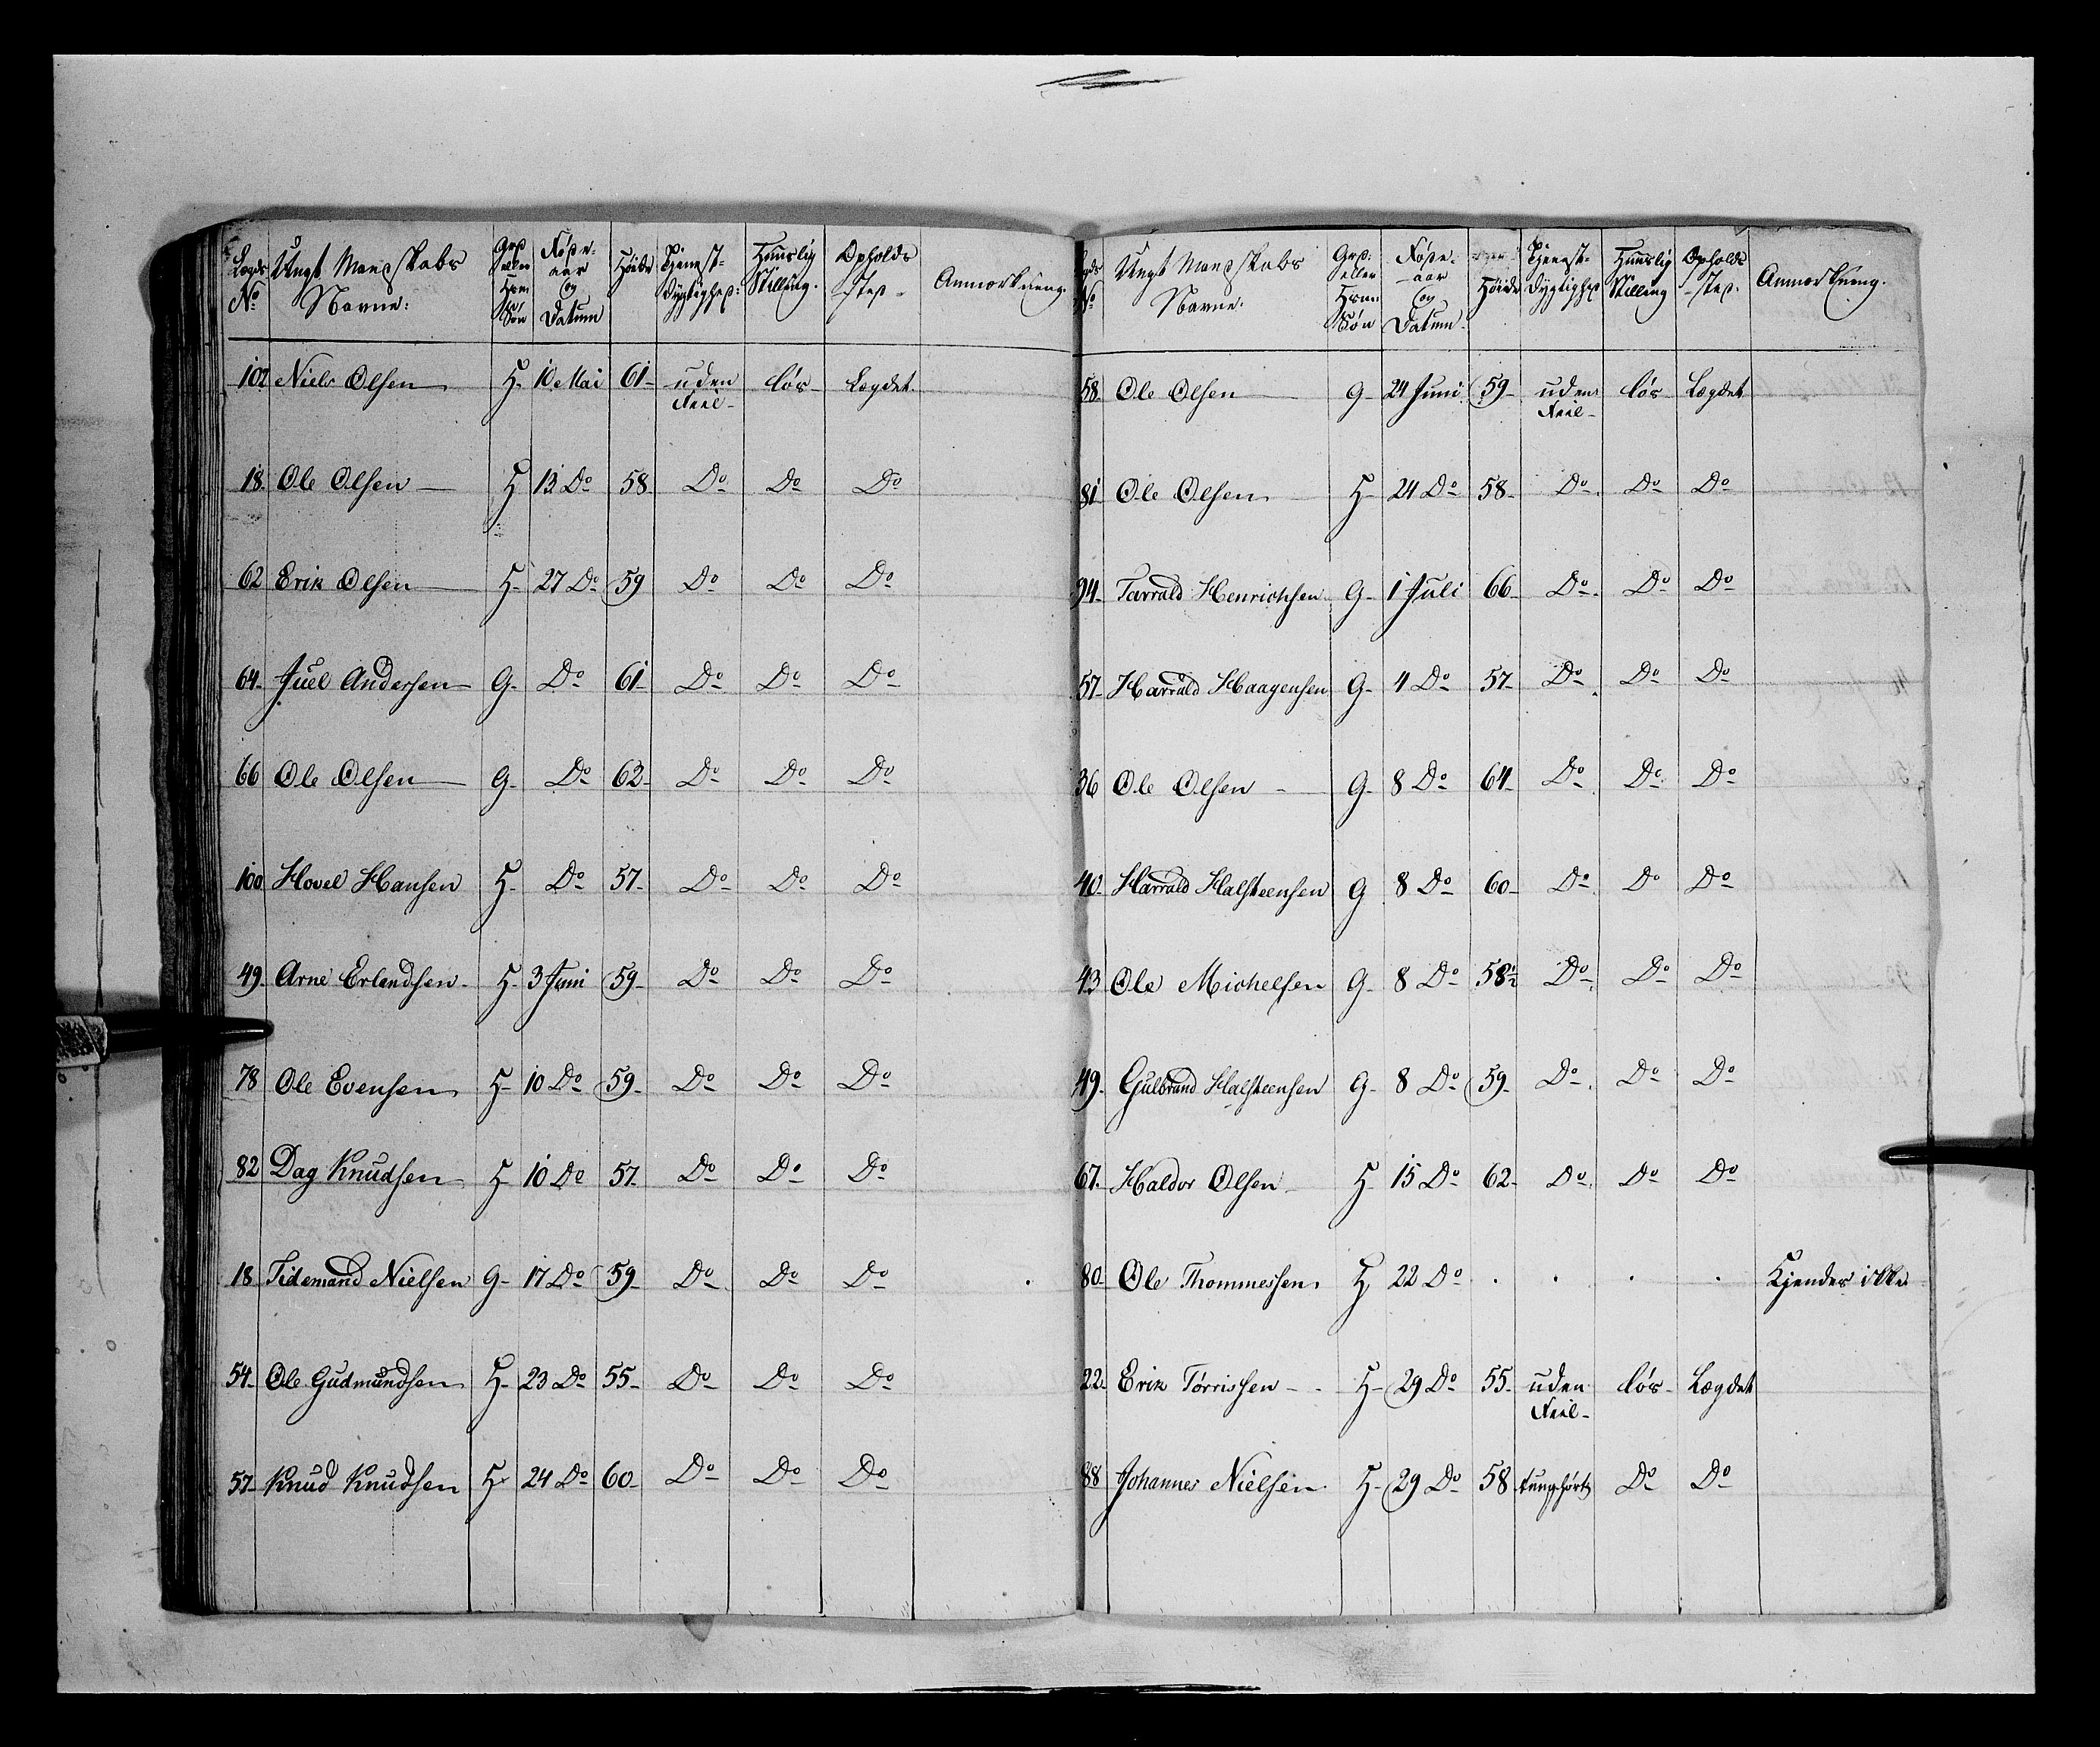 Lægds No | Ungt Mandskabs Navne: | Grd eller Hsm: Søn | Føde-aar og Datum | Höide | Tjenest-dygtighed: | Huuslig Stilling. | Opholds-sted. | Anmærkning.
102 Niels Olsen H. 10 Mai 61 uden Feil løs Lægdet.
18. Ole Olsen H 13 Do 58. Do Do Do
62 Erik Olsen H. 27 Do 59 Do Do Do
64. Juel Andersen G. Do 61 Do Do Do
66 Ole Olsen G. Do 62 Do Do Do
100 Hovel Hansen H. Do 57 Do Do Do
49. Arne Erlendsen H. 3 Juni 59 Do Do Do
78 Ole Evensen H 10 Do 59 Do Do Do
82 Dag Knudsen H 10 Do 57. Do Do Do
18 Tidemand Nielsen G 17 Do 59 Do Do Do
54. Ole Gudmundsen H. 23 Do 55 Do Do Do
57. Knud Knudsen H 24 Do 60 Do Do Do
No | Ungt Mandskabs Navne. | Grd: eller Hsm: Søn | Føde-aar og Datum. | Höide | Tjenest-dygtighed | Huuslig Stilling | Opholds-sted. | Anmærkning.
58 Ole Olsen G 24 Juni 59 uden Feil løs Lægdet
81 Ole Olsen H 24 Do 58 Do Do Do
94. Tarrald Henrichsen G. 1 Juli 66 Do Do Do
57. Harrald Haagensen G. 4 Do 57 Do Do Do
36 Ole Olsen G. 8 Do 64 Do Do Do
40. Harrald Halsteensen G 8 Do 60 Do Do Do
43 Ole Michelsen G. 8 Do 58½ Do Do Do
49. Gulbrand Halsteensen G. 8 Do 59 Do Do Do
67. Haldor Olsen H 15 Do 62 Do Do Do
80. Ole Thommessen H 22 Do . . . . Kjendes ikke
22. Erik Tørrissen H 29 Do 55. uden Feil løs Lægdet
88 Johannes Nielsen H. 29 Do 58 tunghørt Do Do